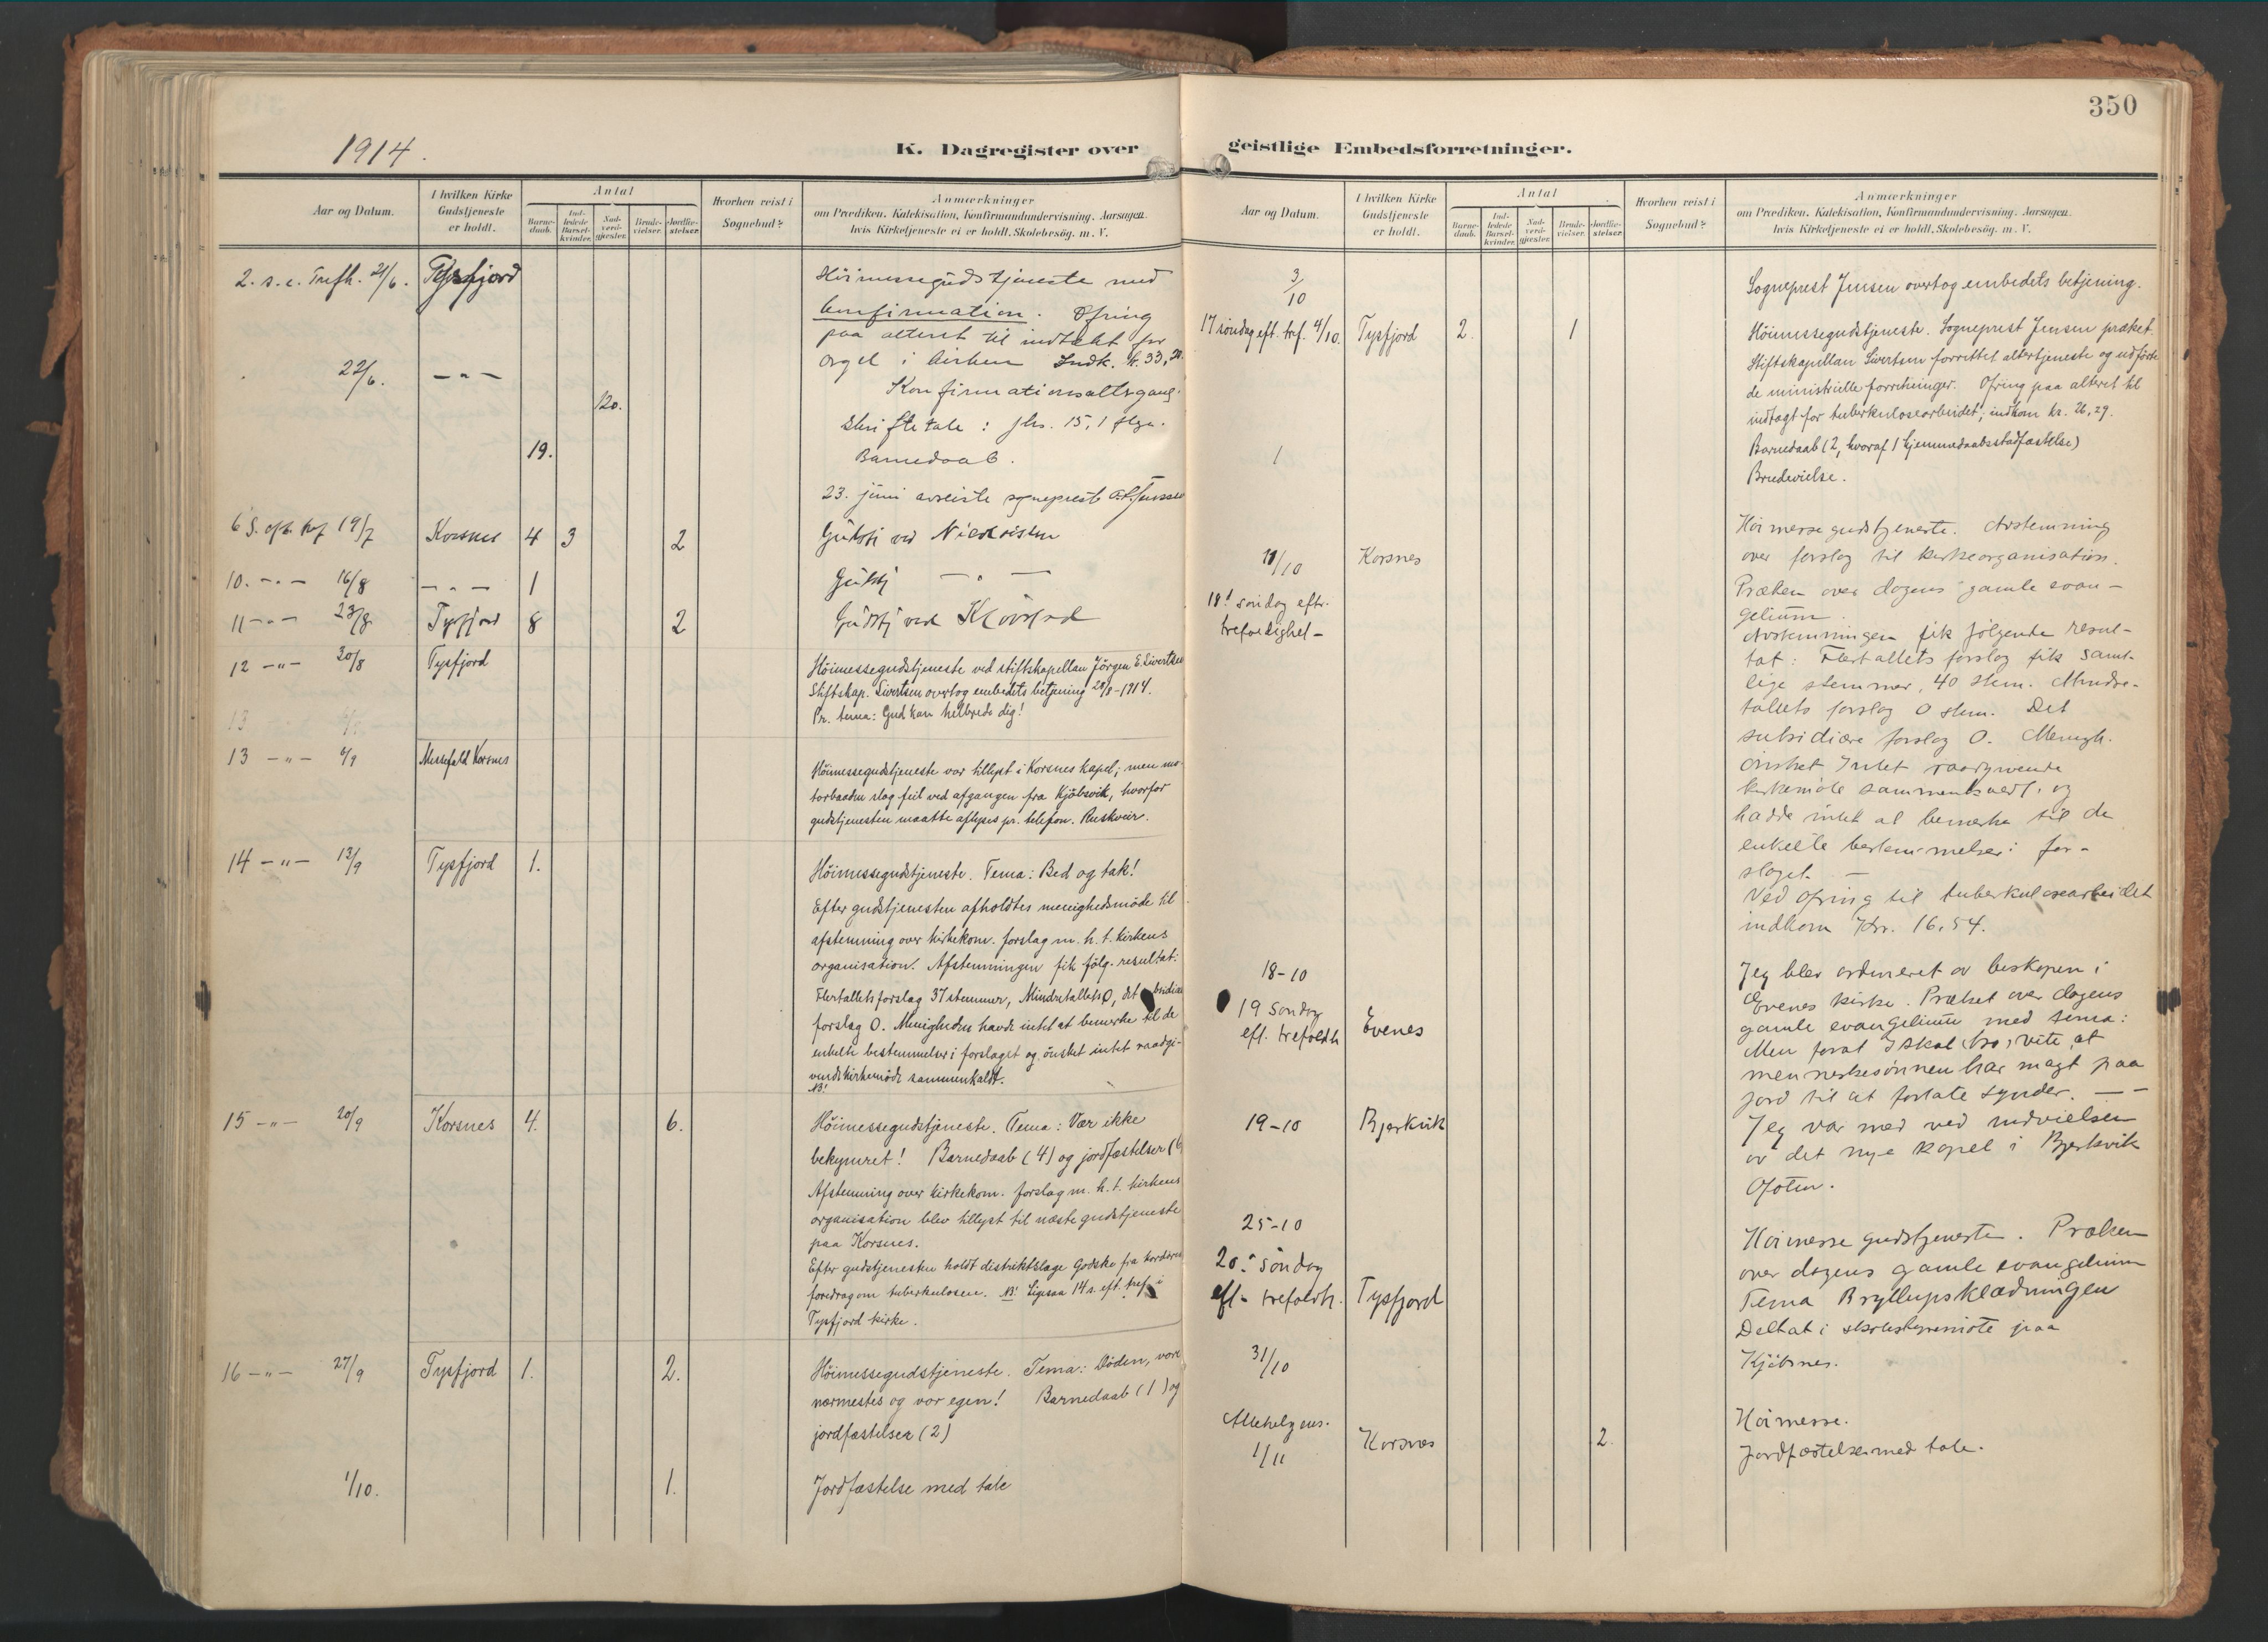 350
1914.
K. Dagregister over geistlige Embedsforretninger.
Aar og Datum.
I hvilken Kirke Gudstjeneste er holdt.
Antal
Barnedaab.
Indledede Barselkvinder.
Nadverdgjæster.
Brudevielser.
Jordfæstelser.
Hvorhen reist i Sognebud?
Anmærkninger
om Prædiken, Katekisation, Konfirmandundervisning. Aarsagen,
hvis Kirketjeneste ei er holdt, Skolebesøg. m. V.
2. s. e. Trefh. 21/6. Tysfjord Höimessegudstjeneste med
konfirmation. Ofring
paa alteret til indtekt for
orgel i kirken Indk. kr. 33,20
22/6. — " — 120. Konfirmationsaltergang.
Skriftetale: Jhs. 15, 1 flg.
19. Barnedaab.
23. juni avreiste sogneprest
6 S. eft. tref 19/7 Korsnes 4 3 2 Gudstj ved
10. — " — 16/8 — " — 1 Gudstj — " —
11 — " — 23/8 Tysfjord 8 2 Gudstj ved
12 — " — 30/8 Tysfjord Höimessegudstjeneste ved stiftskapellan Jörgen E. Sivertsen
Stiftskap. Sivertsen overtog embedets betjening 28/8 - 1914.
Pr. tema: Gud kan helbrede dig!
13
13 — " — 6/9 Messefald Korsnes
Höimessegudstjeneste var tillyst i Korsnes kapel; men mo-
torbaaden slog feil ved afgangen fra Kjöbsvik, hvorfor
gudstjenesten maatte aflyses pr. telefon. Ruskveir.
14 — " — 13/9 Tysfjord 1. Höimessegudstjeneste. Tema: Bed og tak!
Efter gudstjenesten afholdtes menighedsmöde til
afstemning over kirkekom. forslag m. h. t. kirkens
organisation. Afstemningen fik fölg. resultat:
Flertallets forslag 37 stemmer, Mindretallets 0, det
forslag 0. Menigheden havde intet at bemerke til de
enkelte bestemmelser i forslaget og önsket intet raadgi-
vende kirkemöde sammenkaldt.
NB!
15 — " — 20/9 Korsnes 4. 6. Höimessegudstjeneste. Tema: Vær ikke
bekymret! Barnedaab (4) og jordfæstelser (6
Afstemning over kirkekom. forslag m. h. t. kirkens
organisation blev tillyst til næste gudstjeneste
paa Korsnes.
Efter gudstjenesten holdt distriktslæge Godske fra
foredrag om tuberkulosen. NB! Ligesaa 14 s. eft. tref. i
Tysfjord kirke.
16 — " — 27/9 Tysfjord 1. 2. Höimessegudstjeneste. Tema: Döden, vore
nærmestes og vor egen! Barnedaab (1) og
jordfæstelser (2)
1/10. 1. Jordfæstelse med tale
Aar og Datum.
I hvilken Kirke Gudstjeneste er holdt.
Antal
Barnedaab.
Indledede Barselkvinder.
Nadverdgjæster.
Brudevielser.
Jordfæstelser.
Hvorhen reist i Sognebud?
Anmærkninger
om Prædiken, Katekisation, Konfirmandundervisning. Aarsagen,
hvis Kirketjeneste ei er holdt, Skolebesøg. m. V.
3/10 Sogneprest Jensen overtog embedets betjening.
17 söndag eft. tref. 4/10. Tysfjord 2. 1 Höimessegudstjeneste. Sogneprest Jensen præket.
Stiftskapellan Sivertsen forrettet altertjeneste og udförte
de ministrielle forretninger. Ofring paa alteret til
indtægt for tuberkulosearbeidet; indkom kr. 26,29.
Barnedaab (2, hvoraf 1 hjemmedaabsstadfæstelse)
Brudevielse.
11/10 Korsnes Höimessegudstjeneste. Avstemning
over forslag til kirkeorganisation.
18. söndag eftr. Præken over dagens gamle evan-
trefoldighet — gelium.
Avstemningen fik følgende resul-
tat: Flertallets forslag fik samt-
lige stemmer, 40 stem. Mindre-
tallets forslag 0 stem. Det
subsidiære forslag 0. Menigh.
önsket intet raadgivende
kirkemöte sammenkaldt, og
hadde intet at bemerke til de
enkelte bestemmelser i for-
slaget. —
Ved ofring til tuberkulosearbeidet
indkom Kr. 16,54.
18-10 Jeg blev ordineret av biskopen i
19 Sondag Evenes kirke. Præket over dagens
eft. trefoldh Evenes gamle evangelium med tema:
Men forat I skal vite, at
menneskesönnen har magt paa
jord til at forlate synder. — —
19-10 Bjerkvik Jeg var med ved indvielsen
av det nye kapel i Bjerkvik
Ofoten.
25-10 Höimesse gudstjeneste. Præken
20. söndag over dagens gamle evangelium
eft. trefoldh. Tysfjord Tema Bryllupsklædningen
31/10 Deltat i skolestyremöte paa
Kjöbsnes.
Allehelgens. Höimesse.
1/11 Korsnes 2. Jordfæstelse med tale.